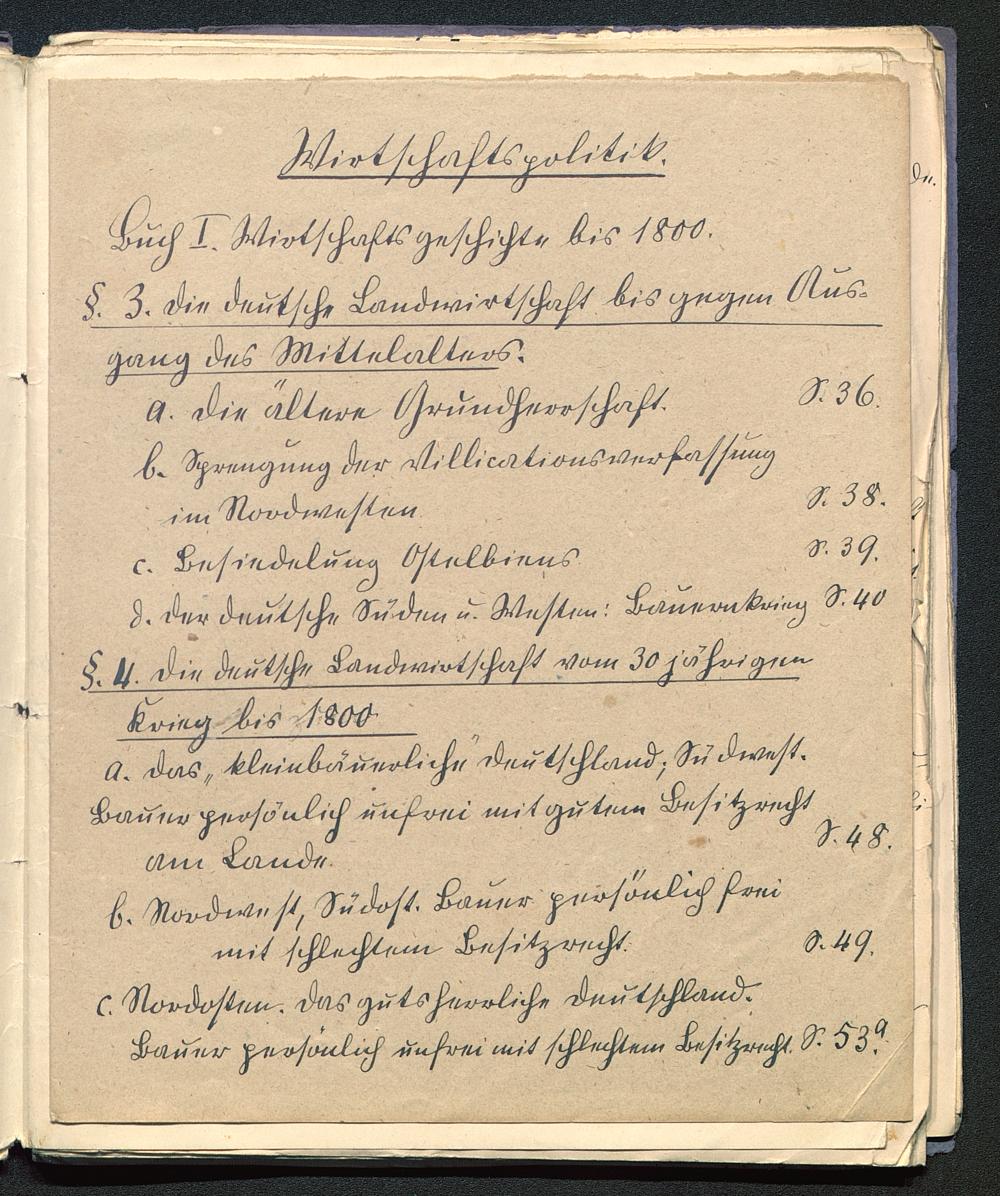 Wirtschaftspolitik.
Buch I. Wirtschaftsgeschichte bis 1800.
§. 3. Die deutsche Landwirtschaft bis gegen Aus-
gang des Mittelalters.
a. Die ältere Grundherrschaft. S. 36.
b. Sprengung der Villicationsverfassung
im Nordwesten S. 38.
c. Besiedelung Ostelbiens S. 39.
d. Der deutsche Süden u. Westen: Bauernkrieg S. 40
§. 4. Die deutsche Landwirtschaft vom 30 jährigen
Krieg bis 1800
a. Das „kleinbäuerliche" Deutschland; Südwest.
Bauer persönlich unfrei mit gutem Besitzrecht
am Lande. S. 48.
b. Nordwest, Südost. Bauer persönlich frei
mit schlechtem Besitzrecht. S. 49.
c. Nordosten. Das gutsherrliche Deutschland.
Bauer persönlich unfrei mit schlechtem Besitzrecht. S. 53a.